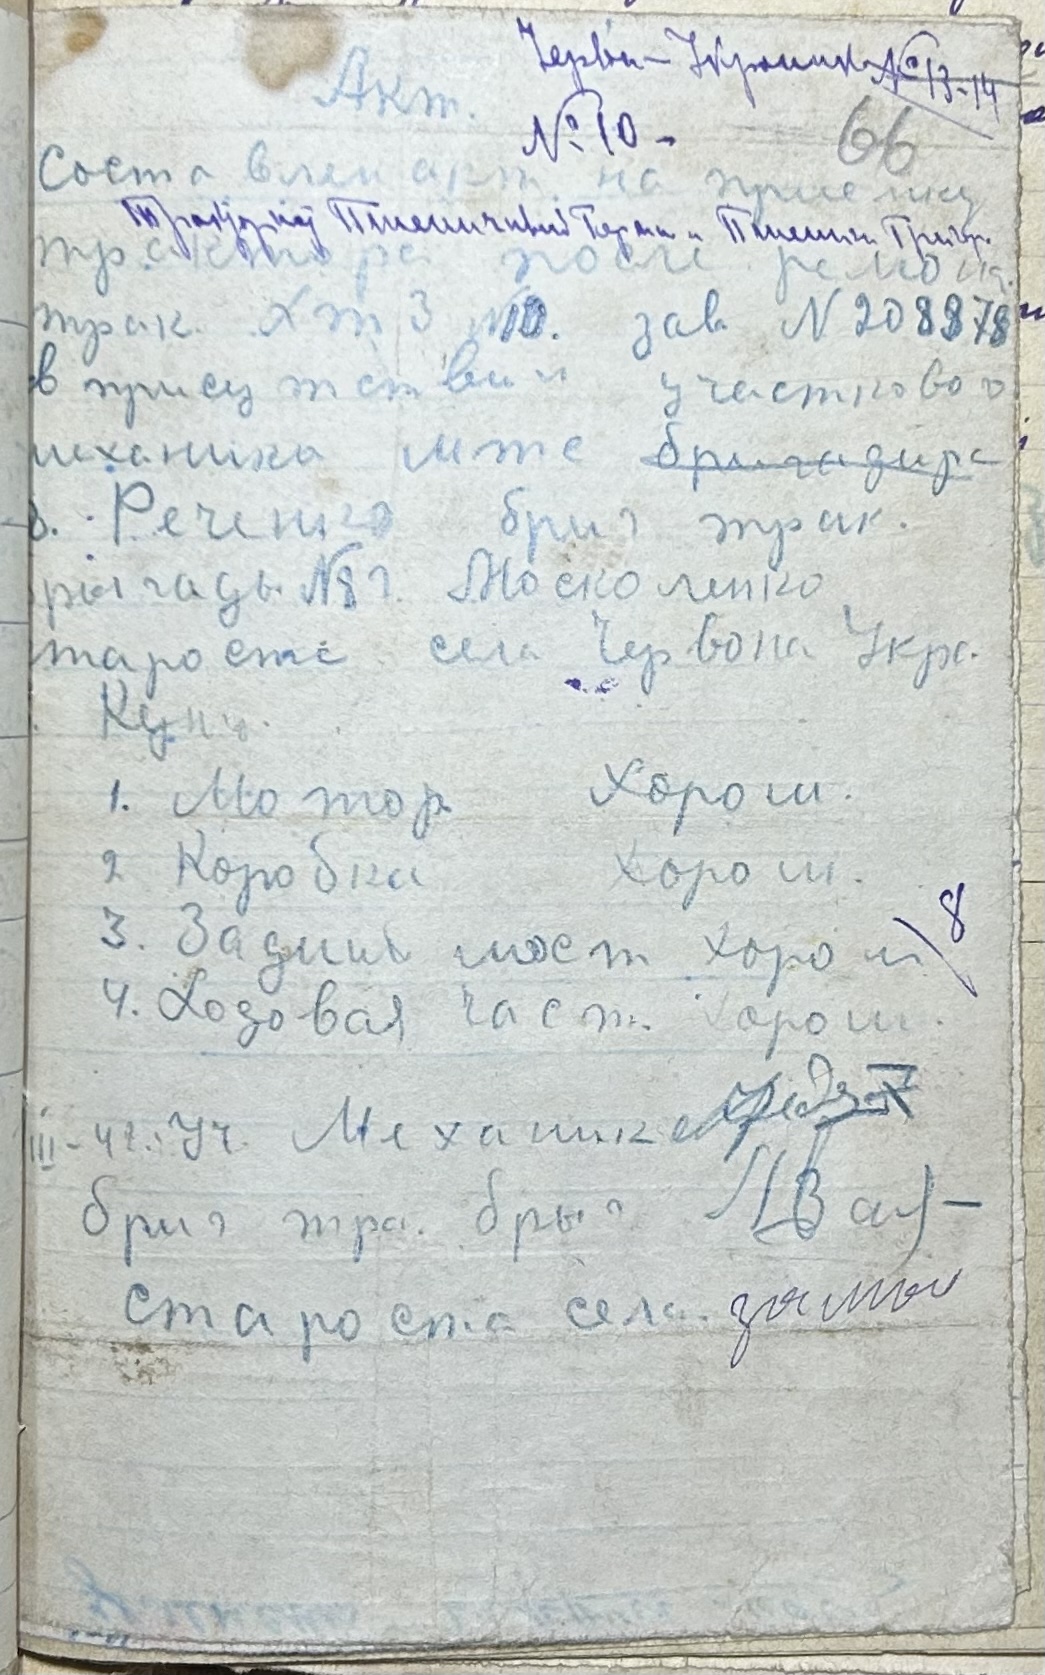 Червон-Украинка №13-14
Акт.
№ 10 -
66
Составлен акт. на приемку
Пшеничний Герас и Пшенич Григор.
трактора после ремонт.
трак. ХТЗ №10. зав N 208878
в присутствии участкового
механика мтс бригадира
в. Реченко бриг трак.
рыгады №8 г. Москоленко
таросте села Червона Укра.
1. Мотор Хорош.
2 Коробка Хорош.
3. Задний мост хорош
8
4. Ходовая част. Хорош.
III-42. Уч. Механик
бриг тра. брыг
староста села.